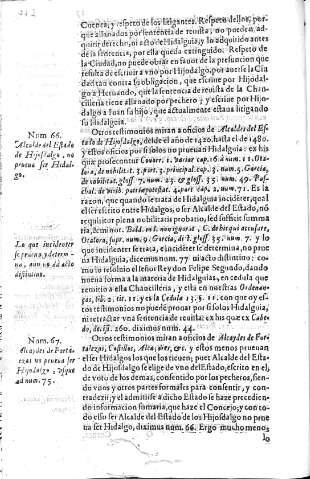 Cuenca, y respeto de los litigantes. Respeto dellos, por-
que allanados por sentencia de reuista, no pueden, ad-
quirir derecho, ni acto de Hidalguia, y lo adquirido antes
de la sentencia, por ella queda extinguido. Respeto de
la Ciudad, no puede obrar en fauor de la presuncion que
resulta de escriuir a vno por Hijodalgo, por auerse la Ciu
dad contra su obligacion, que escriue por Hijodal-
go a Hernando, que la sentencia de reuista de la Chan-
cilleria tiene allanado por pechero; y escriue por Hijo-
dalgo a Iuan su hijo, que actualmente estaua litigando
su Hidalguia.
Num. 66.
Alcalde del Estado
de Hijosdalgo, no
prueua ser Hidal-
go.
Otros testimonios miran a oficios de Alcaldes del Es-
tado de Hijosdalgo, desde el año de 1420 hasta el de 1480.
y estos oficios por si solos no prueuan Hidalguia: ex his
quæ prosecuntur Couarr. 1. variar cap. 16. à num. 11. Ota-
lora, de nobilit. 2. part. 3. principal. cap. 3. num. 5. Garcia,
de nobilitat. gloss. 7. num. 23. & gloss. 35. num. 49.
4. part. cap. 2. num. 71. Es la
razon, que quando se trata de Hidalguia incidêter, qual
es el ser escrito entre Hidalgos, o ser Alcalde del Estado, nó
requisitur plena nobilitatis probatio, sed sufficit summa
ria, & minor. Bald. in l. non ignorat, C. de his qui accusare,
Otalora, supr. num. 9. Garcia, dict. gloss. 35. num. 7. y lo
La que incidenter
se prueua, y determi-
na, aun no da acto
distintiuo.
que incidenter se trata, è incidêter se determina, no prue
ua Hidalguia, dicemus num. 77 ni acto distintiuo: co-
mo lo resoluio el señor Rey don Felipe Segundo, dando
nueua forma a la materia de Hidalguias, en cedula que
remitio a esta Chancilleria, y esta en nuestras Ordenan-
ças, lib. 2. tit. 11. y es la Cedula 13. §. 11. con que oy es-
tos testimonios no puedê prouar por si solos Hidalguia,
ni retractar vna sentencia de reuista: ex his quæ ex Cabe
do, decis. 260. diximos num. 44.
Num. 67.
Alcaydes de Forta-
lezas no prueua ser
Hijodalgo, vsque
ad num. 75.
Otros testimonios miran a oficios de Alcaydes de For-
talezas, Castillos, Alcaçares, &c. y estos menos prueuan
el ser Hidalgos los que los tienen; pues Alcalde del Esta-
do de Hijosdalgo se elige de vno del Estado, escrito en el,
de voto de los demas, consentido por los pecheros, sien
do vnos y otros partes formales para consentir, y con-
tradezir; y el admitirse a dicho Estado se haze precedien-
do informacion sumaria, que haze el Concejo; y con to-
do esso ser Alcalde del Estado de los Hijosdalgo no prue
ua ser Hidalgo, diximus num. 66. Ergo mucho menos,
lo